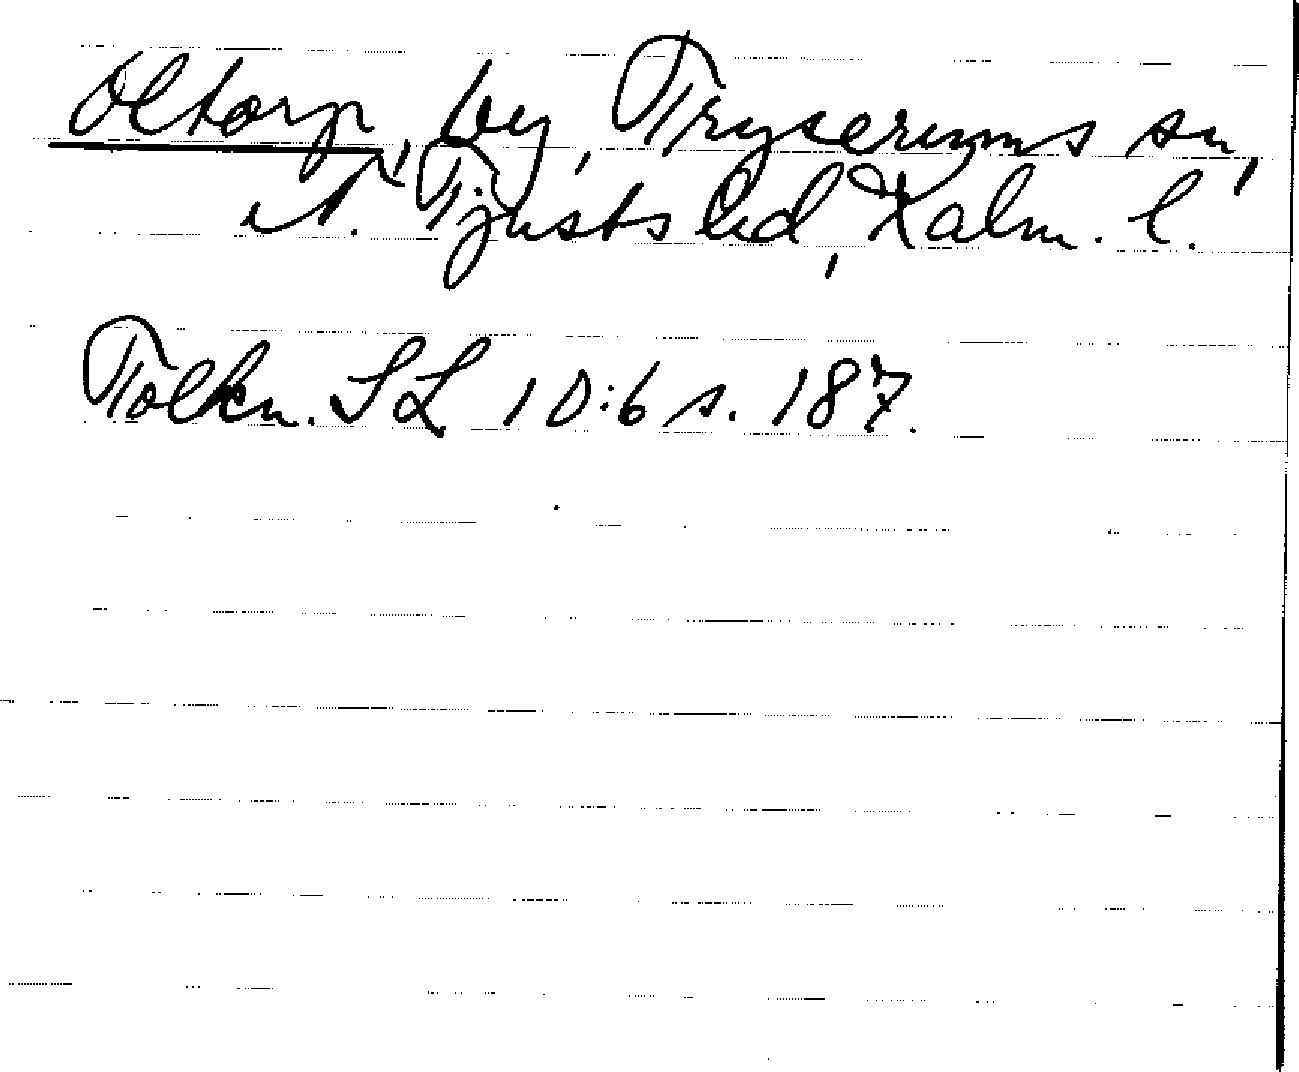 Oltorp, by, Tryserums sn,
N. Tjusts hd, Kalm. l.
Tolkn. SL 10:6 s. 187.